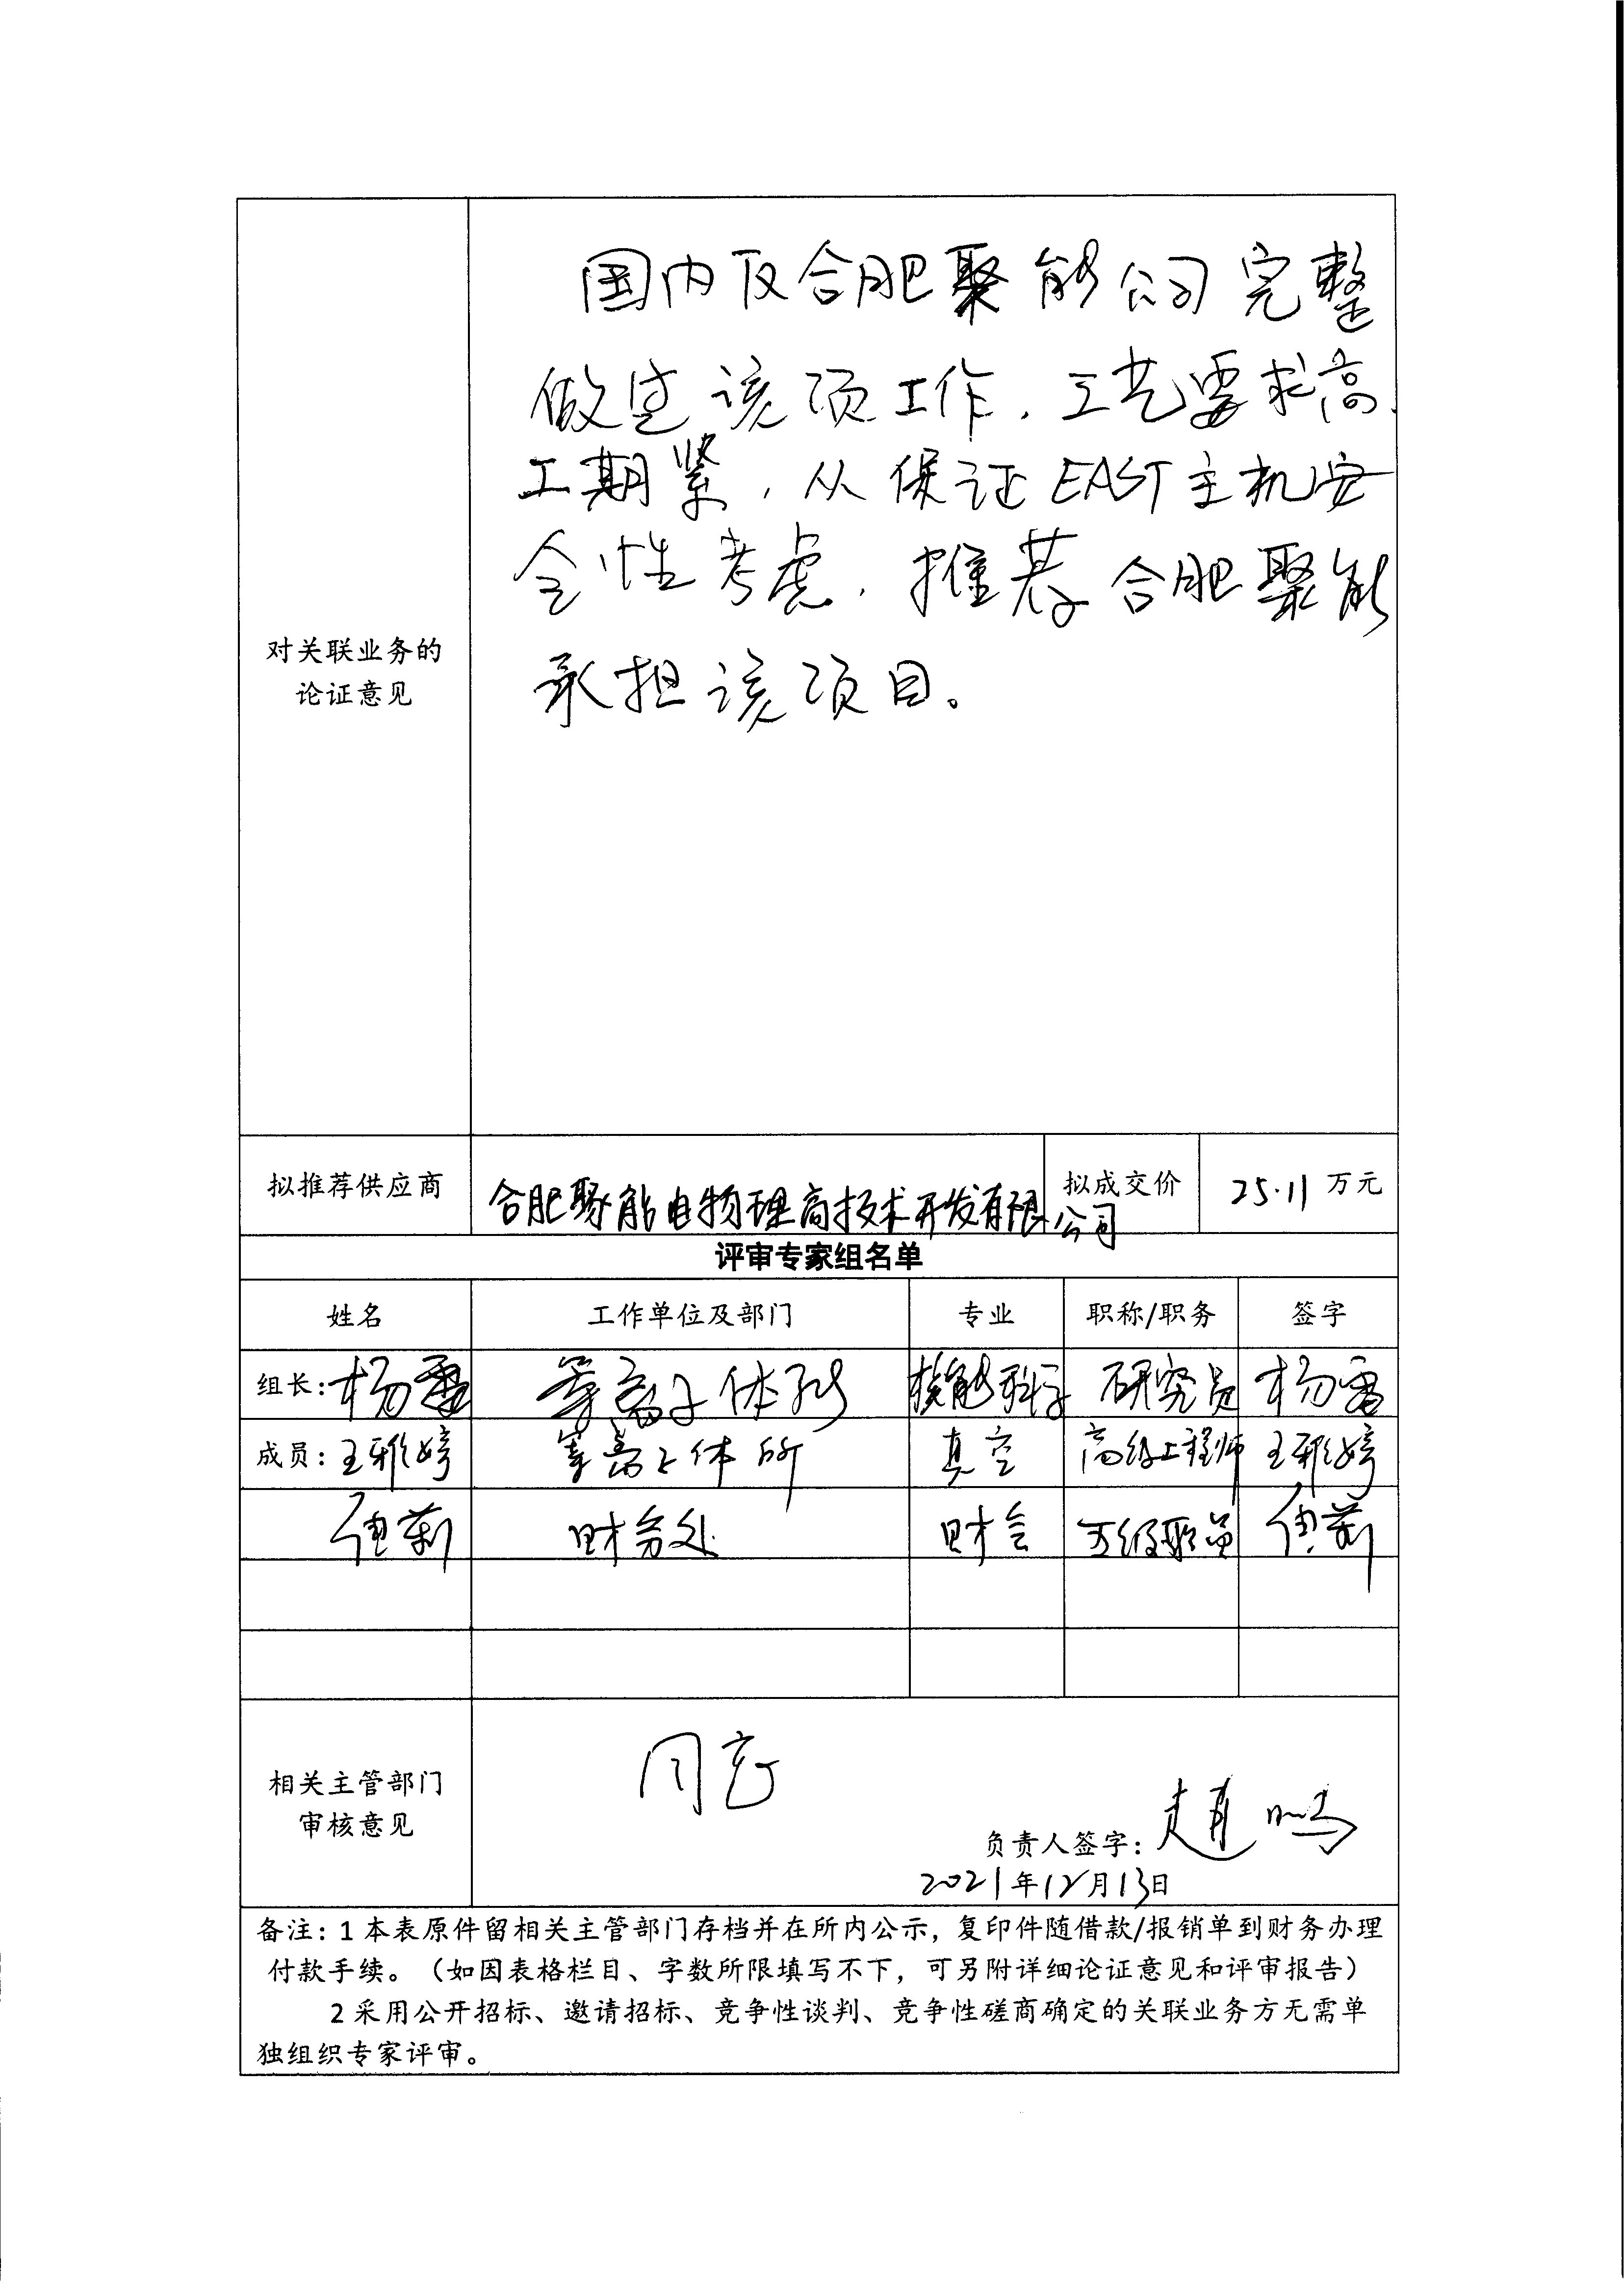 国内仅合肥聚能公司完整
做过该项工作,工艺要求高,
工期紧,从保证EAST主机安
全性考虑,推荐合肥聚能
承担该项目。
对关联业务的
论证意见
拟推荐供应商 合肥聚能电物理高技术开发有限公司 拟成交价 25.11 万元
评审专家组名单
姓名 工作单位及部门 专业 职称/职务 签字
组长: 杨雷 等离子体所 核能科学 研究员 杨雷
成员: 王雅婷 等离子体所 真空 高级工程师 王雅婷
财务处 财会 五级职员
相关主管部门
审核意见
同意
负责人签字:
2021年12月13日
备注:1 本表原件留相关主管部门存档并在所内公示,复印件随借款/报销单到财务办理
付款手续。(如因表格栏目、字数所限填写不下,可另附详细论证意见和评审报告)
2 采用公开招标、邀请招标、竞争性谈判、竞争性磋商确定的关联业务方无需单
独组织专家评审。